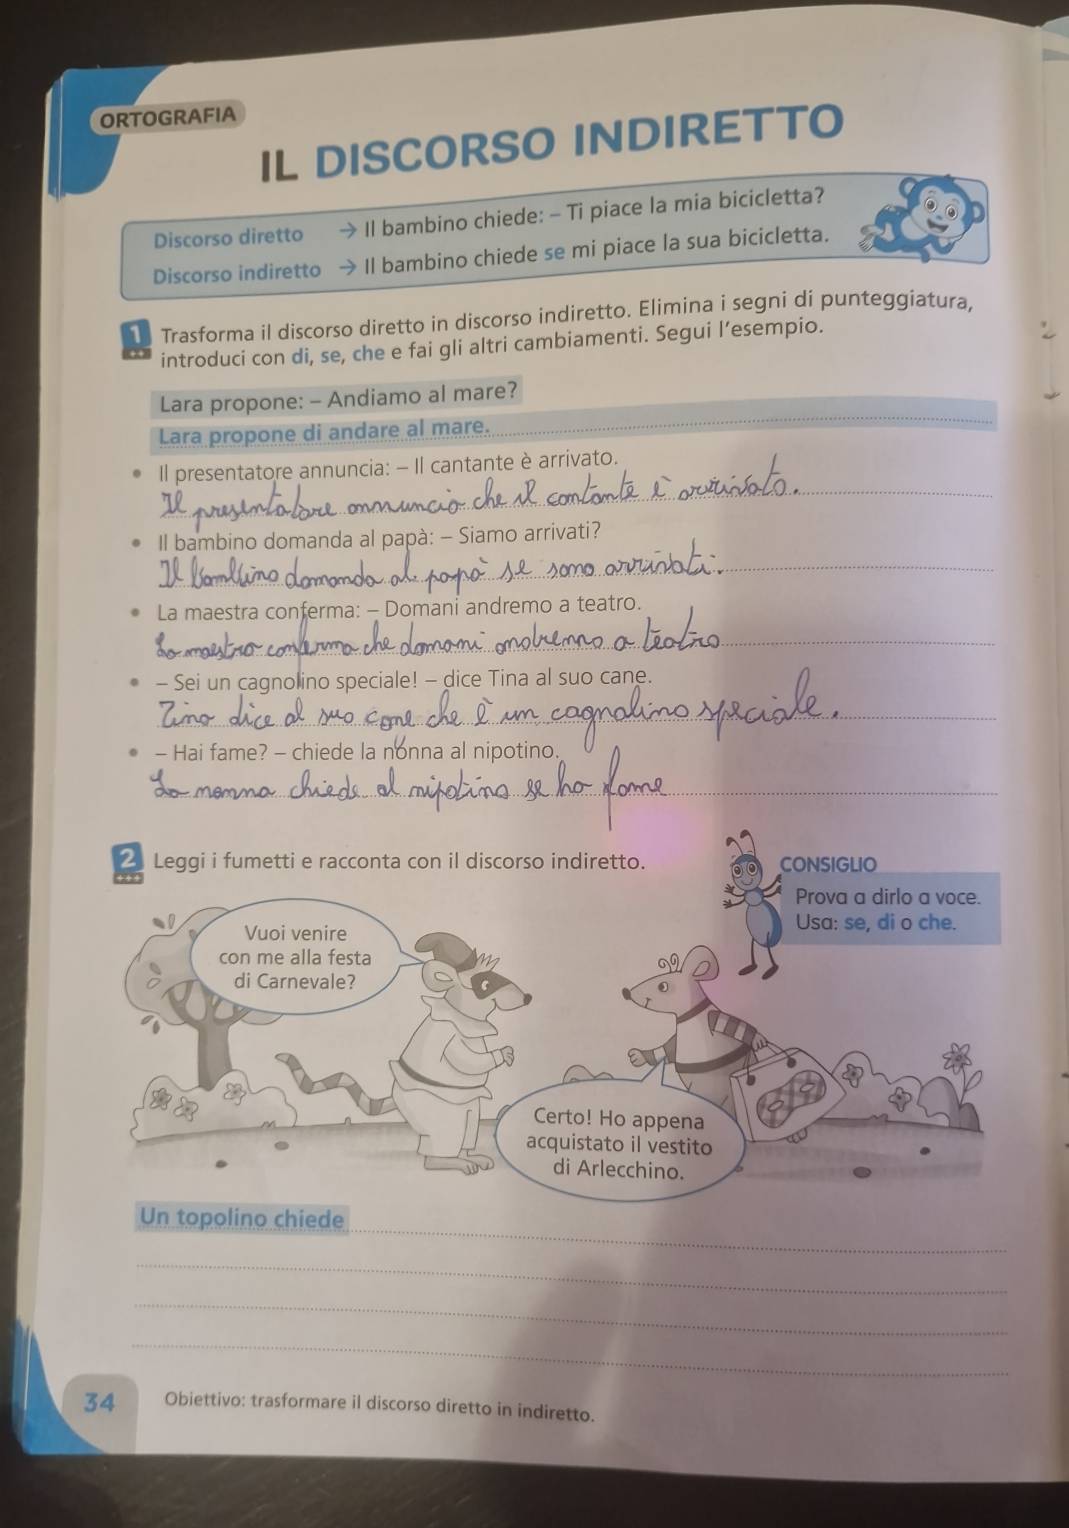 ORTOGRAFIA
IL DISCORSO INDIRETTO
Discorso diretto → Il bambino chiede: – Ti piace la mia bicicletta?
Discorso indiretto → Il bambino chiede se mi piace la sua bicicletta.
1 Trasforma il discorso diretto in discorso indiretto. Elimina i segni di punteggiatura,
introduci con di, se, che e fai gli altri cambiamenti. Segui l'esempio.
Lara propone: – Andiamo al mare?
Lara propone di andare al mare.
• Il presentatore annuncia: – Il cantante è arrivato.
Il presentatore annuncia che il cantante è arrivato.
• Il bambino domanda al papà: – Siamo arrivati?
Il bambino domanda al papà se sono arrivati.
• La maestra conferma: – Domani andremo a teatro.
La maestra conferma che domani andremo a teatro
• – Sei un cagnolino speciale! – dice Tina al suo cane.
Tina dice al suo cane che è un cagnolino speciale.
• – Hai fame? – chiede la nonna al nipotino.
La nonna chiede al nipotino se ha fame
2 Leggi i fumetti e racconta con il discorso indiretto.
CONSIGLIO
Prova a dirlo a voce.
Usa: se, di o che.
Vuoi venire
con me alla festa
di Carnevale?
Certo! Ho appena
acquistato il vestito
di Arlecchino.
Un topolino chiede
34 Obiettivo: trasformare il discorso diretto in indiretto.